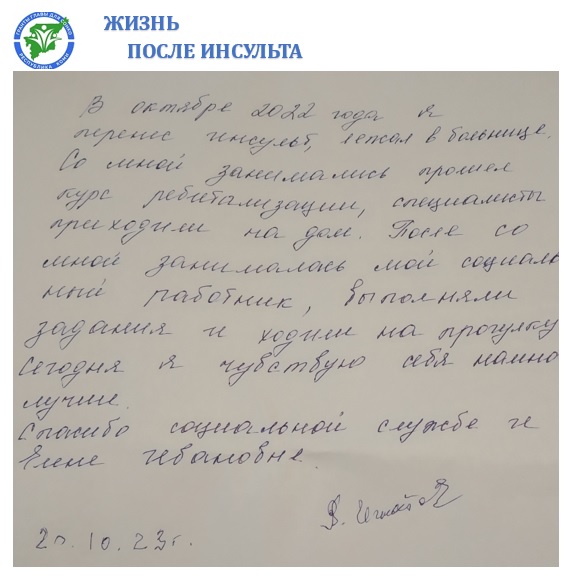 ГРАНТЫ ГЛАВЫ ДЛЯ СОНКО
РЕСПУБЛИКА КОМИ
ЖИЗНЬ
ПОСЛЕ ИНСУЛЬТА
В октябре 2022 года я
перенес инсульт, лежал в больнице.
Со мной занимались прошел
курс ребитализации, специалисты
приходили на дом. После со
мной занималась мой социаль
ный работник, выполняли
задания и ходили на прогулку
Сегодня я чувствую себя намно
лучше.
Спасибо социальной службе и
Елене Ивановне.
В.
10.23г.